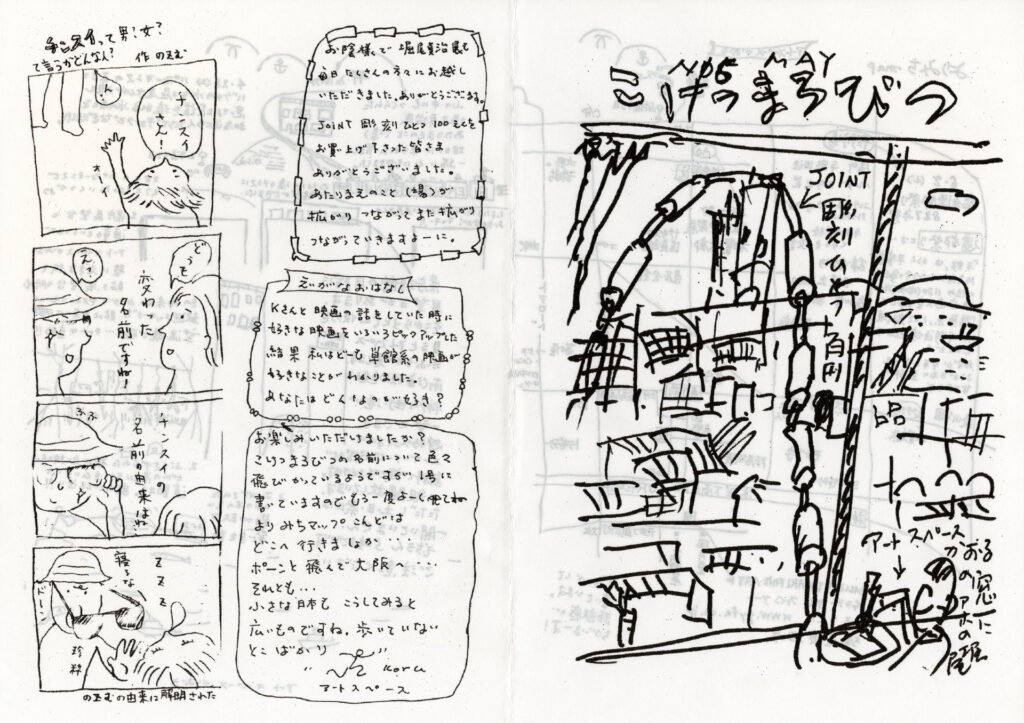 チンスイって男?女?
て言うかどんな人?
作 のえむ
ん
チンスイ
さん!
オーイ
どうも
えっ
変わった
名前ですね!
ふふ
チンスイの
名前の由来はね
ZZZ
寝るな
珍粋
のえむの由来に解明された
お陰様で 堀尾貞治展も
毎日たくさんの方々にお越し
いただきました。ありがとうございます。
JOINT 彫刻ひとつ100えんを
お買上げ下さった皆さま
ありがとうございました。
あたりまえのこと(場)が
拡がり つながって また拡がり
つながっていきますよーに。
えいがなおはなし
Kさんと映画の話をしていた時に
好きな映画をいろいろピックアップした
結果 私はどーも 単館系の映画が
好きなことがわかりました。
あなたはどんなのが好き?
お楽しみいただけましたか?
こけつまろびつの名前について色々
飛びかっているようですが 1号に
書いていますのでもう一度よーく見てね
よりみちマップ こんどは
どこへ行きましょうか・・・
ポーンと飛んで大阪へ・・・
それとも・・・
小さな日本も こうしてみると
広いものですね。歩いていない
とこばかり
Koru
アートスペース
NO5 MAY
こけつまろびつ
JOINT
彫刻ひとつ百円
品
アートスペース